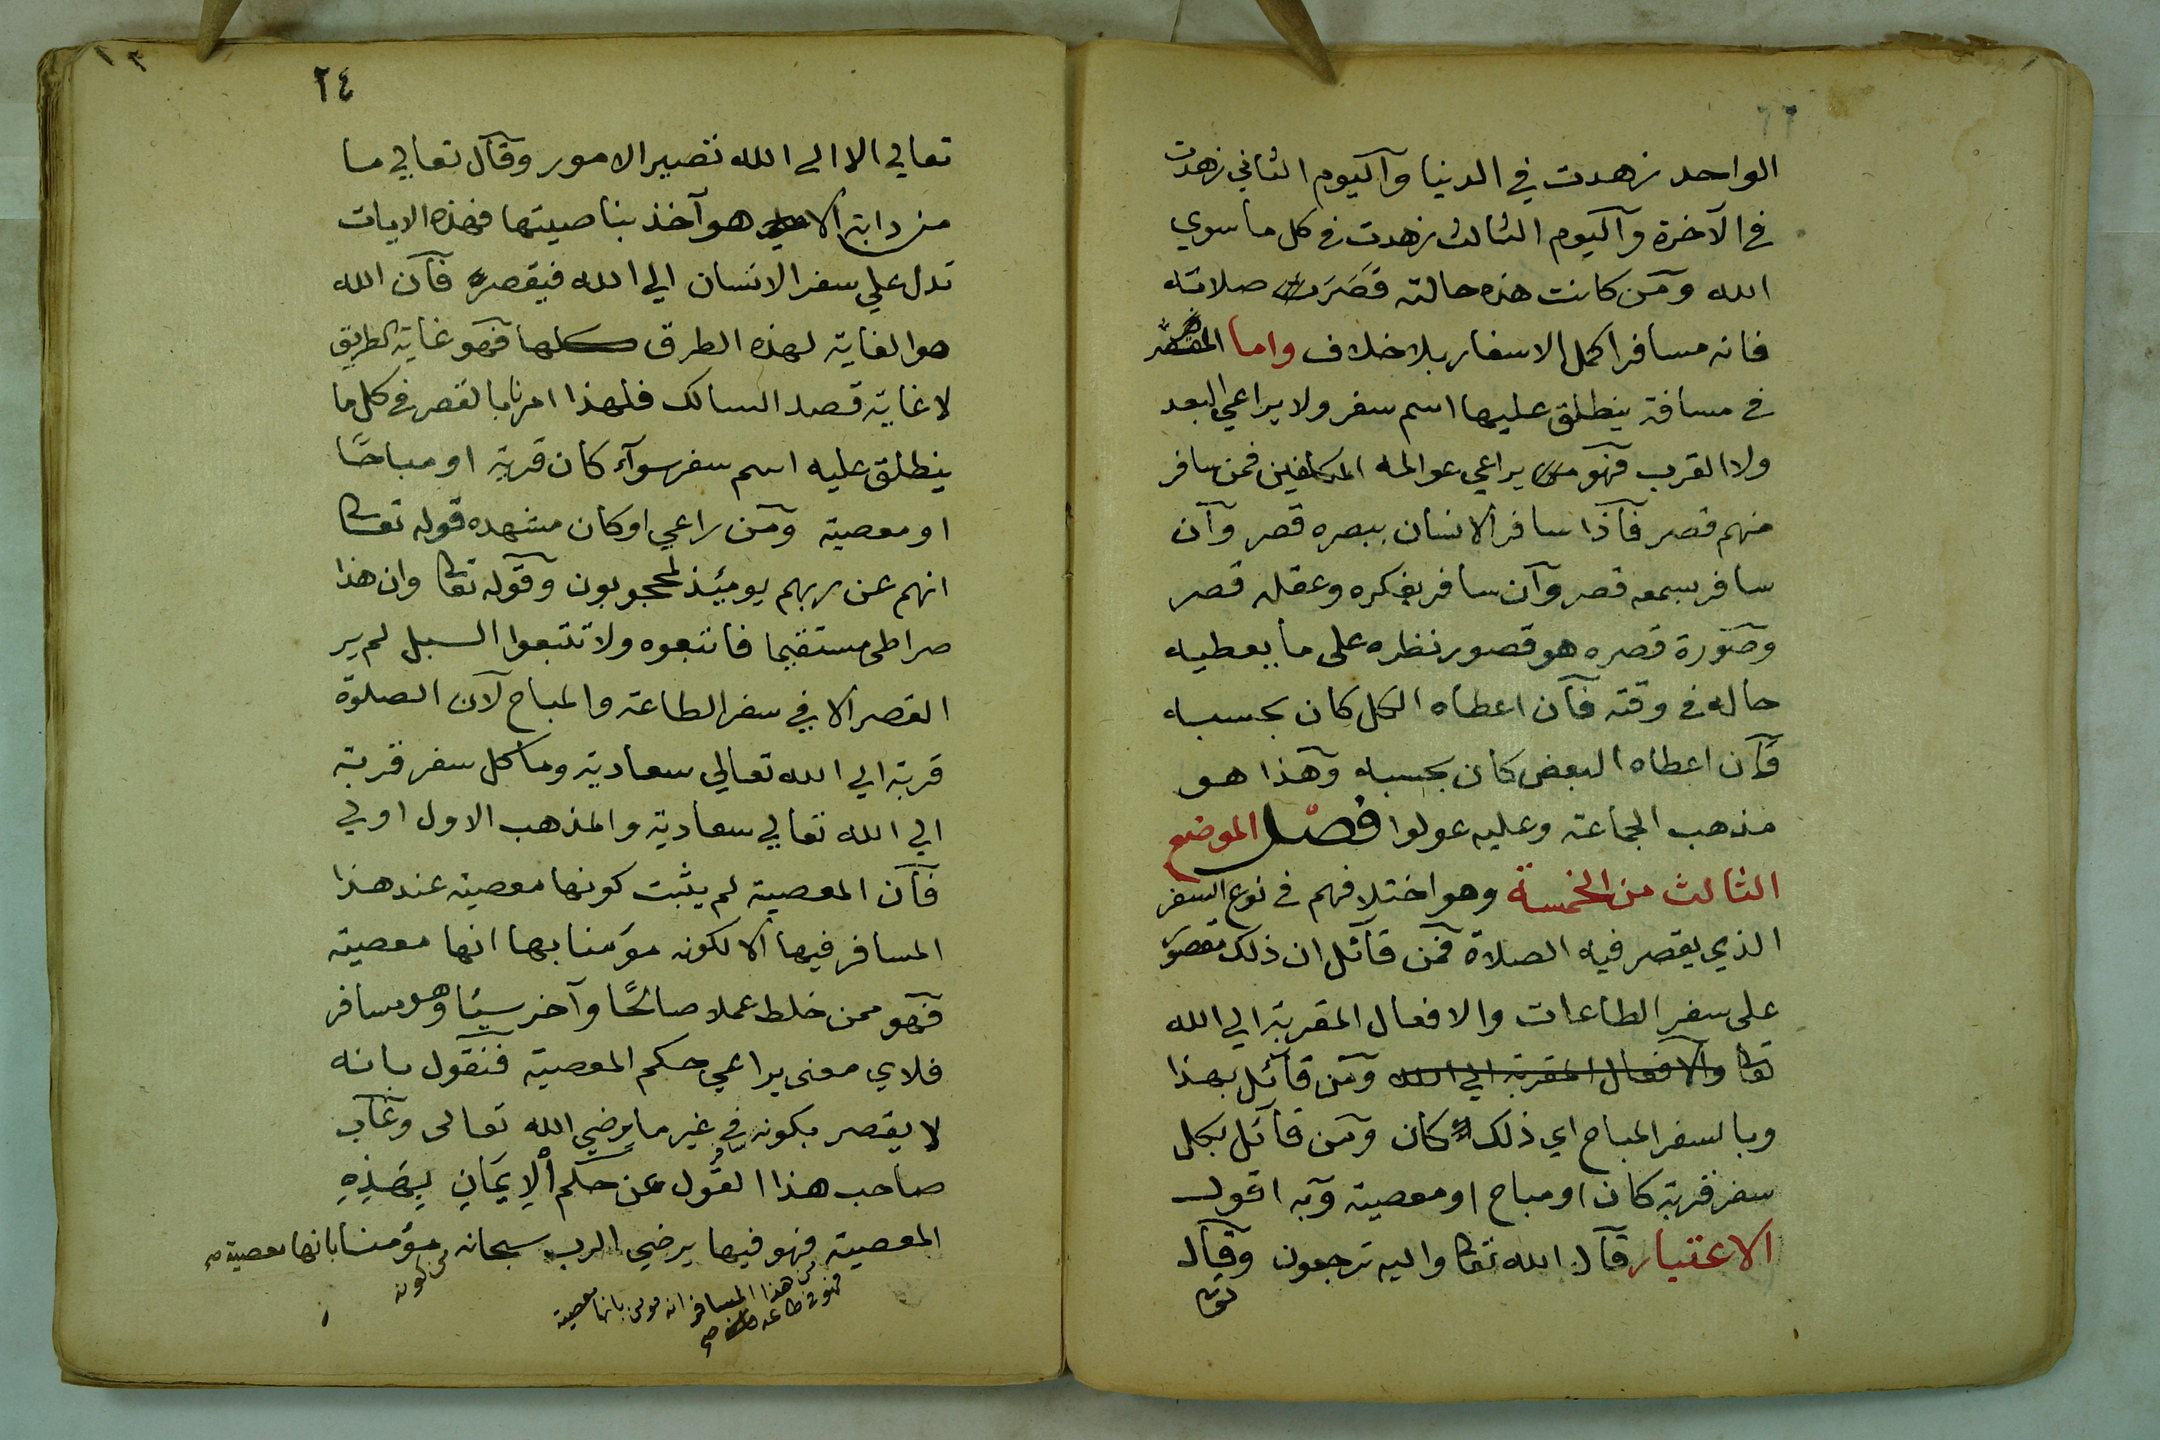 الواحد زهدت في الدنيا واليوم الثاني زهدت
في الآخرة واليوم الثالث زهدت في كل ما سوي
الله ومن كانت هذه حالته قصرت صلاته
فانه مسافر اكمل الاسفار بلا خلاف واما
في مسافة ينطلق عليها اسم سفر ولا يراعي البعد
ولا القرب فهو من يراعي عوالمه المكلفين فمن سافر
منهم قصر فاذا سافر الانسان ببصره قصر وان
سافر بسمعه قصر وان سافر بفكره وعقله قصر
وصورة قصره هو قصور نظره على ما يعطيه
حاله في وقته فان اعطاه الكل كان بحسبه
فان اعطاه البعض كان بحسبه وهذا هو
مذهب الجماعة وعليه عولوا فصل الموضع
الثالث من الخمسة وهو اختلافهم في نوع السفر
الذي يقصر فيه الصلاة فمن قائل ان ذلك مقصور
على سفر الطاعات والافعال المقربة الي الله
تعا والافعال المقربة الي الله ومن قائل بهذا
وبالسفر المباح اي ذلك كان ومن قائل بكل
سفر قربة كان او مباح او معصية وبه اقول
الاعتبار قال الله تعا واليه ترجعون وقال
تعا
٢٤
تعالي الا الى الله تصير الامور وقال تعالي ما
من دابة الا هو آخذ بناصيتها فهذه الايات
تدل علي سفر الانسان الي الله فيقصر فان الله
هو الغاية لهذه الطرق كلها فهو غاية الطريق
لا غاية قصد السالك فلهذا امرنا بالقصر في كل ما
ينطلق عليه اسم سفر سوآء كان قربة او مباحًا
او معصية ومن راعي او كان مشهده قوله تعا
انهم عن ربهم يومئذ لمحجوبون وقوله تعا وان هذا
صراطى مستقيما فاتبعوه ولا تتبعوا السبل لم ير
القصر الا في سفر الطاعة والمباح لان الصلوة
قربة الي الله تعالي سعادية وما كل سفر قربة
الي الله تعالي سعادية والمذهب الاول اولي
فان المعصية لم يثبت كونها معصية عند هذا
المسافر فيها الا لكونه مؤمنا بها انها معصية
فهو ممن خلط عملا صالحًا وآخر سيئا وهو مسافر
فلاي معنى يراعي حكم المعصية فنقول بانه
لا يقصر بكونه في غير ما يرضي الله تعالى وغاب
صاحب هذا القول عن حكم الإيمَانِ بِهَذِهِ
المعصية فهو فيها يرضي الرب سبحانه مؤمنا بانها معصية
من كونه
من هذا المسافر انه مومن بانها معصية
فهو في طاعة